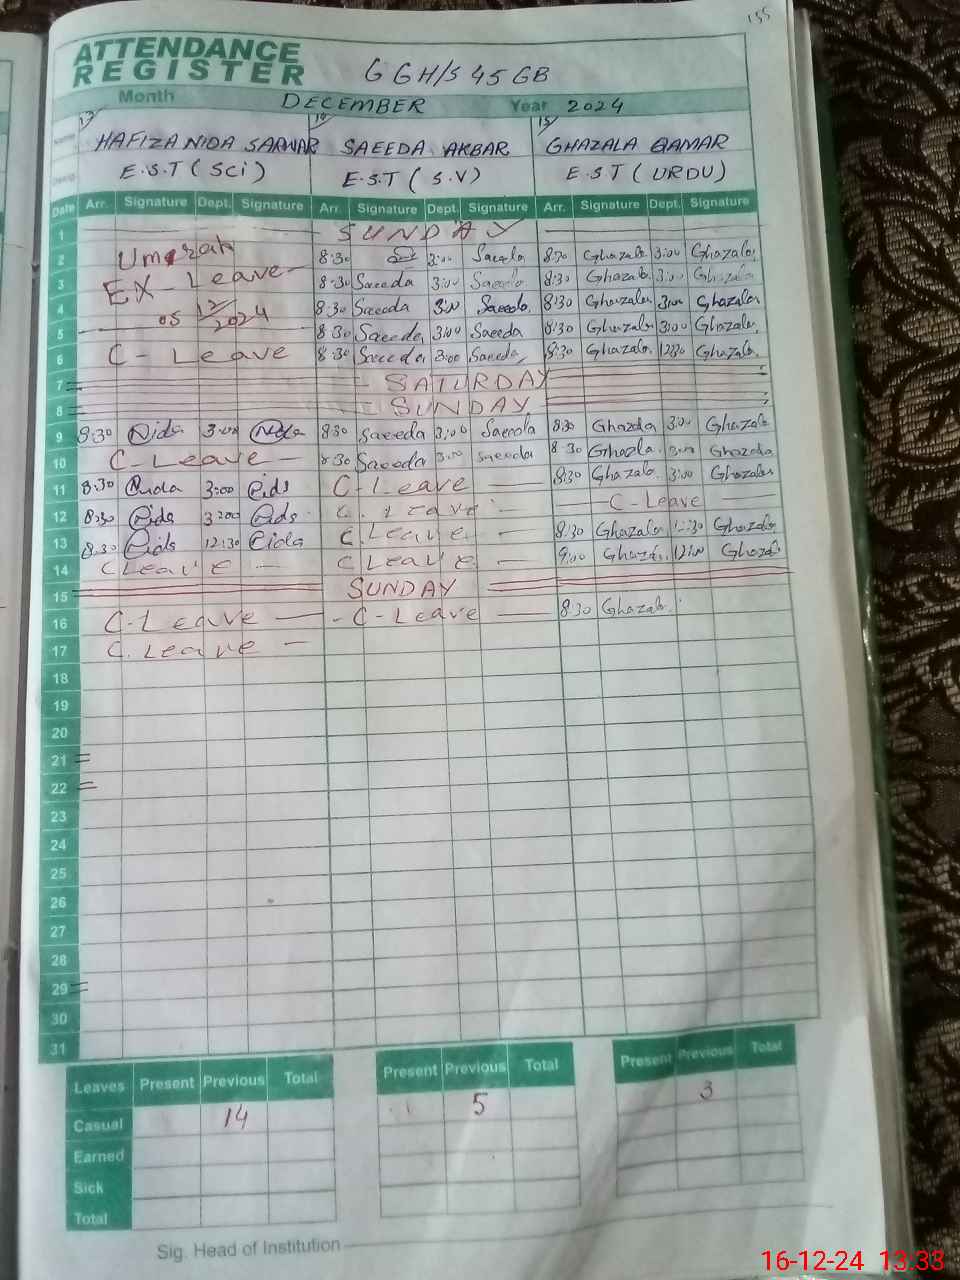 155
ATTENDANCE
REGISTER GGH/S 45 GB
Month DECEMBER Year 2024
Name 13 HAFIZA NIDA SARWAR 14 SAEEDA AKBAR 15 GHAZALA QAMAR
Desig. E.S.T (Sci) E.S.T (S.V) E.S.T (URDU)
Date Arr. Signature Dept. Signature Arr. Signature Dept. Signature Arr. Signature Dept. Signature
1 SUNDAY
2 Umrah 8:30 3:00 Saeeda 8:30 Ghazala 3:00 Ghazala
3 EX-Leave 8:30 Saeeda 3:00 Saeeda 8:30 Ghazala 3:00 Ghazala
4 05 12/2024 8:30 Saeeda 3:00 Saeeda 8:30 Ghazala 3:00 Ghazala
5 8:30 Saeeda 3:00 Saeeda 8:30 Ghazala 3:00 Ghazala
6 C-Leave 8:30 Saeeda 3:00 Saeeda 8:30 Ghazala 12:30 Ghazala
7 SATURDAY
8 SUNDAY
9 8:30 Nida 3:00 Nida 8:30 Saeeda 3:00 Saeeda 8:30 Ghazala 3:00 Ghazala
10 C-Leave 8:30 Saeeda 3:00 Saeeda 8:30 Ghazala 3:00 Ghazala
11 8:30 Nida 3:00 Nida C-Leave 8:30 Ghazala 3:00 Ghazala
12 8:30 Nida 3:00 Nida C. Leave C-Leave
13 8:30 Nida 12:30 Nida C. Leave 8:30 Ghazala 12:30 Ghazala
14 C Leave C Leave 9:00 Ghazala 12:00 Ghazala
15 SUNDAY
16 C-Leave C-Leave 8:30 Ghazala
17 C. Leave
18
19
20
21
22
23
24
25
26
27
28
29
30
31
Leaves Present Previous Total Present Previous Total Present Previous Total
Casual 14 5 3
Earned
Sick
Total
Sig. Head of Institution
16-12-24 13:33